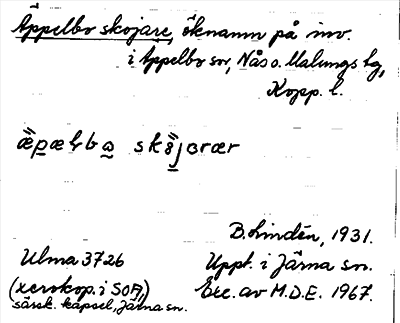 Äppelbo skojare, öknamn på inv.
i Äppelbo sn, Nås o. Malungs tg,
Kopp. l.
B. Lindén, 1931.
Ulma 3726
Uppt. i Järna sn.
(xerokop. i SOA,)
Exc. av M.D.E. 1967.
särsk. kapsel, Järna sn.